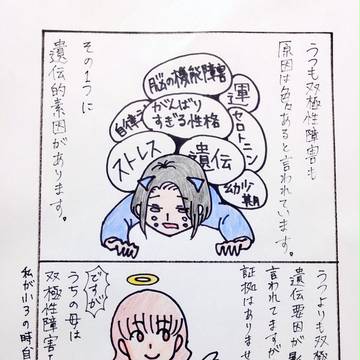 うつも双極性障害も
原因は色々あると言われています。
脳の機能障害
運
自律
がんばり
すぎる性格
セロトニン
ストレス
遺伝
幼少
期
その1つに
遺伝的素因があります。
うつよりも双極
遺伝要因が
言われてますが
証拠はありませ
ですが
うちの母は
双極性障害
私が小3の時自